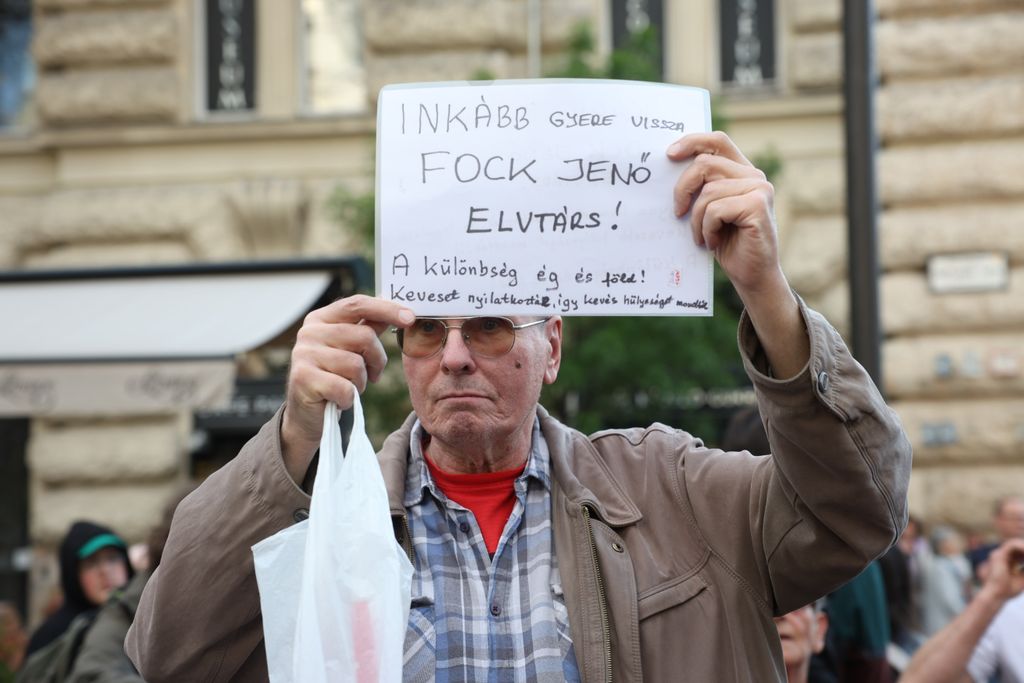 INKÁBB GYERE VISSZA
FOCK JENŐ
ELVTÁRS!
A különbség ég és föld!
Keveset nyilatkozta, így kevés hülyeséget mondtak